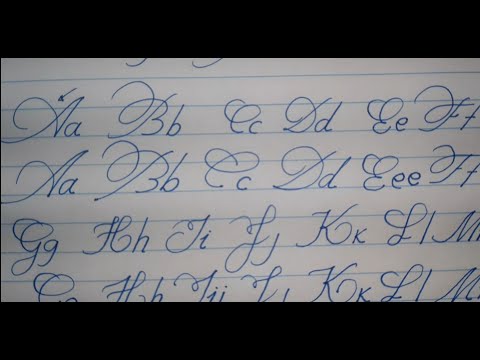 Aa Bb Cc Dd Ee Ff
Aa Bb Cc Dd Eee Ff
Gg Hh Ii Jj Kk Ll M
Hh Iii Jj Kk Ll M